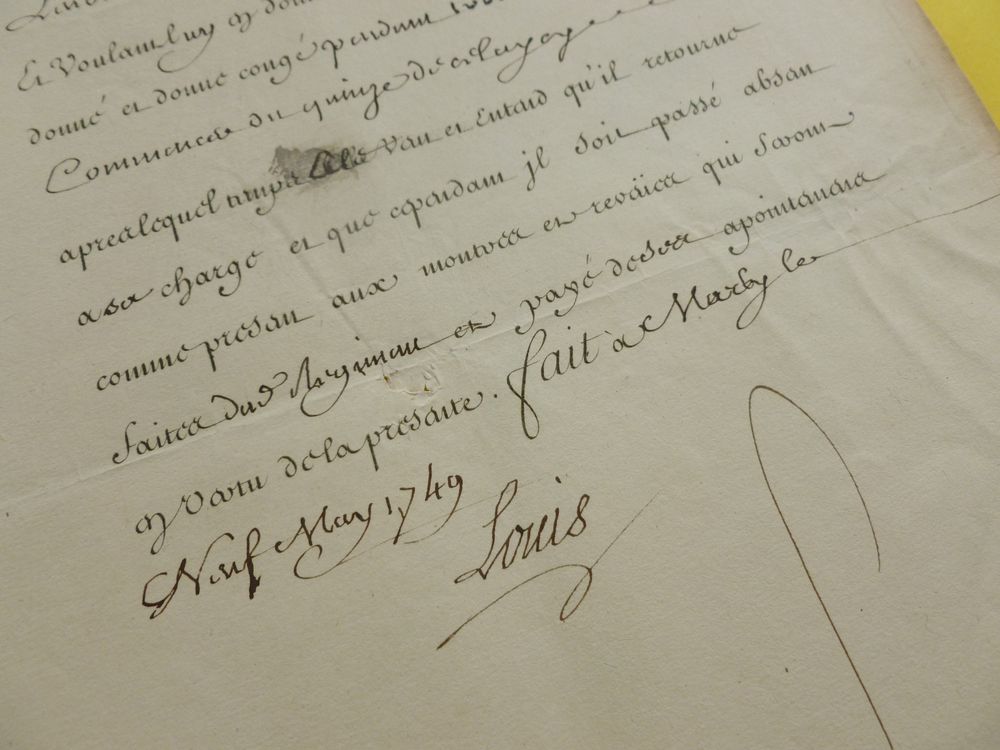 Et Voulant luy en donner
donné et donne congé pendant
Commencer du quinze de ce
apres lequel temps Elle Veut et Entend qu'il retourne
a sa charge et que cependant jl soit passé absent
comme present aux montres et reveües qui seront
faites dud Regiment et payé de ses apointemens
en vertu de la presente. fait à Marly le
Neuf May 1749
Louis